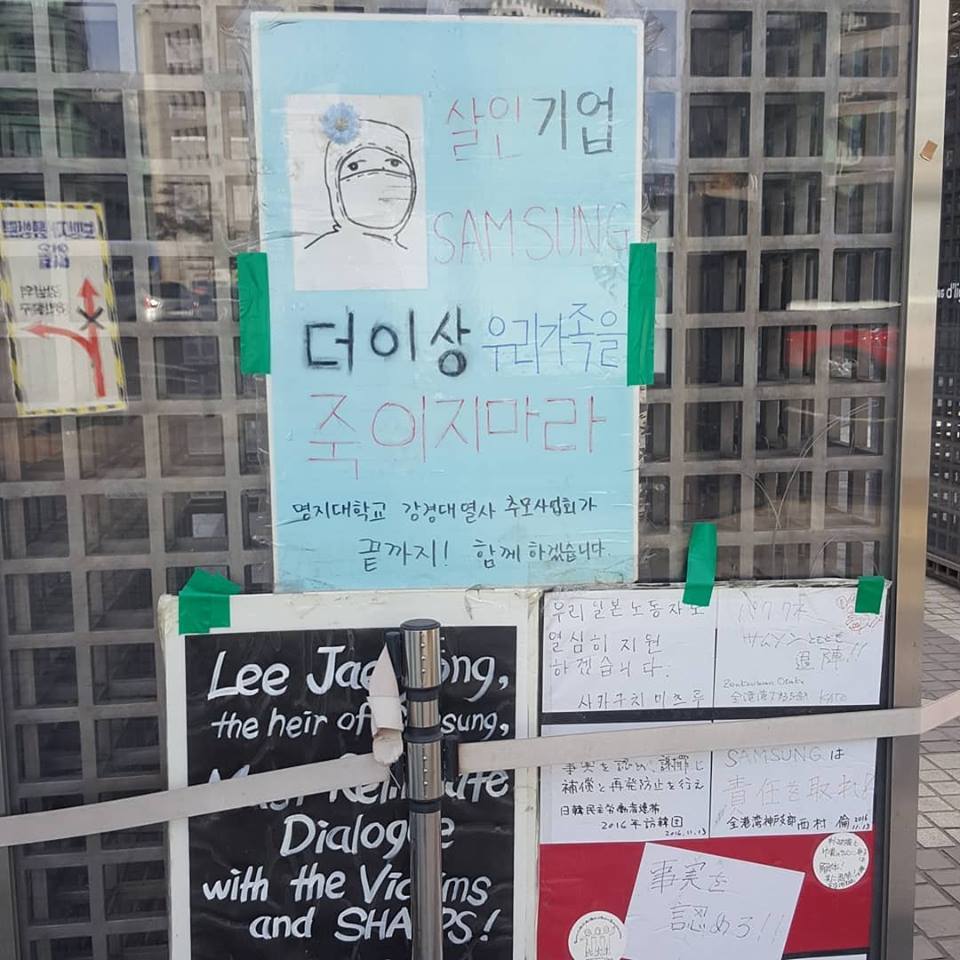 살인기업
SAMSUNG
더이상 우리가족을
죽이지마라
명지대학교 강경대열사 추모사업회가
끝까지! 함께하겠습니다.
Lee Jae
the heir of
Must
Dialogue
with the Victims
and SHARPS!
우리 일본 노동자도
열심히 지원
하겠습니다.
サカグチミツル
パククネ
サムソンとともに
退陣!!
Zenkowan Osaka
KATO
事実を認め、謝罪し
補償と再発防止を行え
日韓民主労働者連帯
2016年訪韓団
2016.11.13
SAMSUNGは
責任を取れ!
全港湾神戸支部 西村 倫 2016
11.13
事実を
認めろ!!